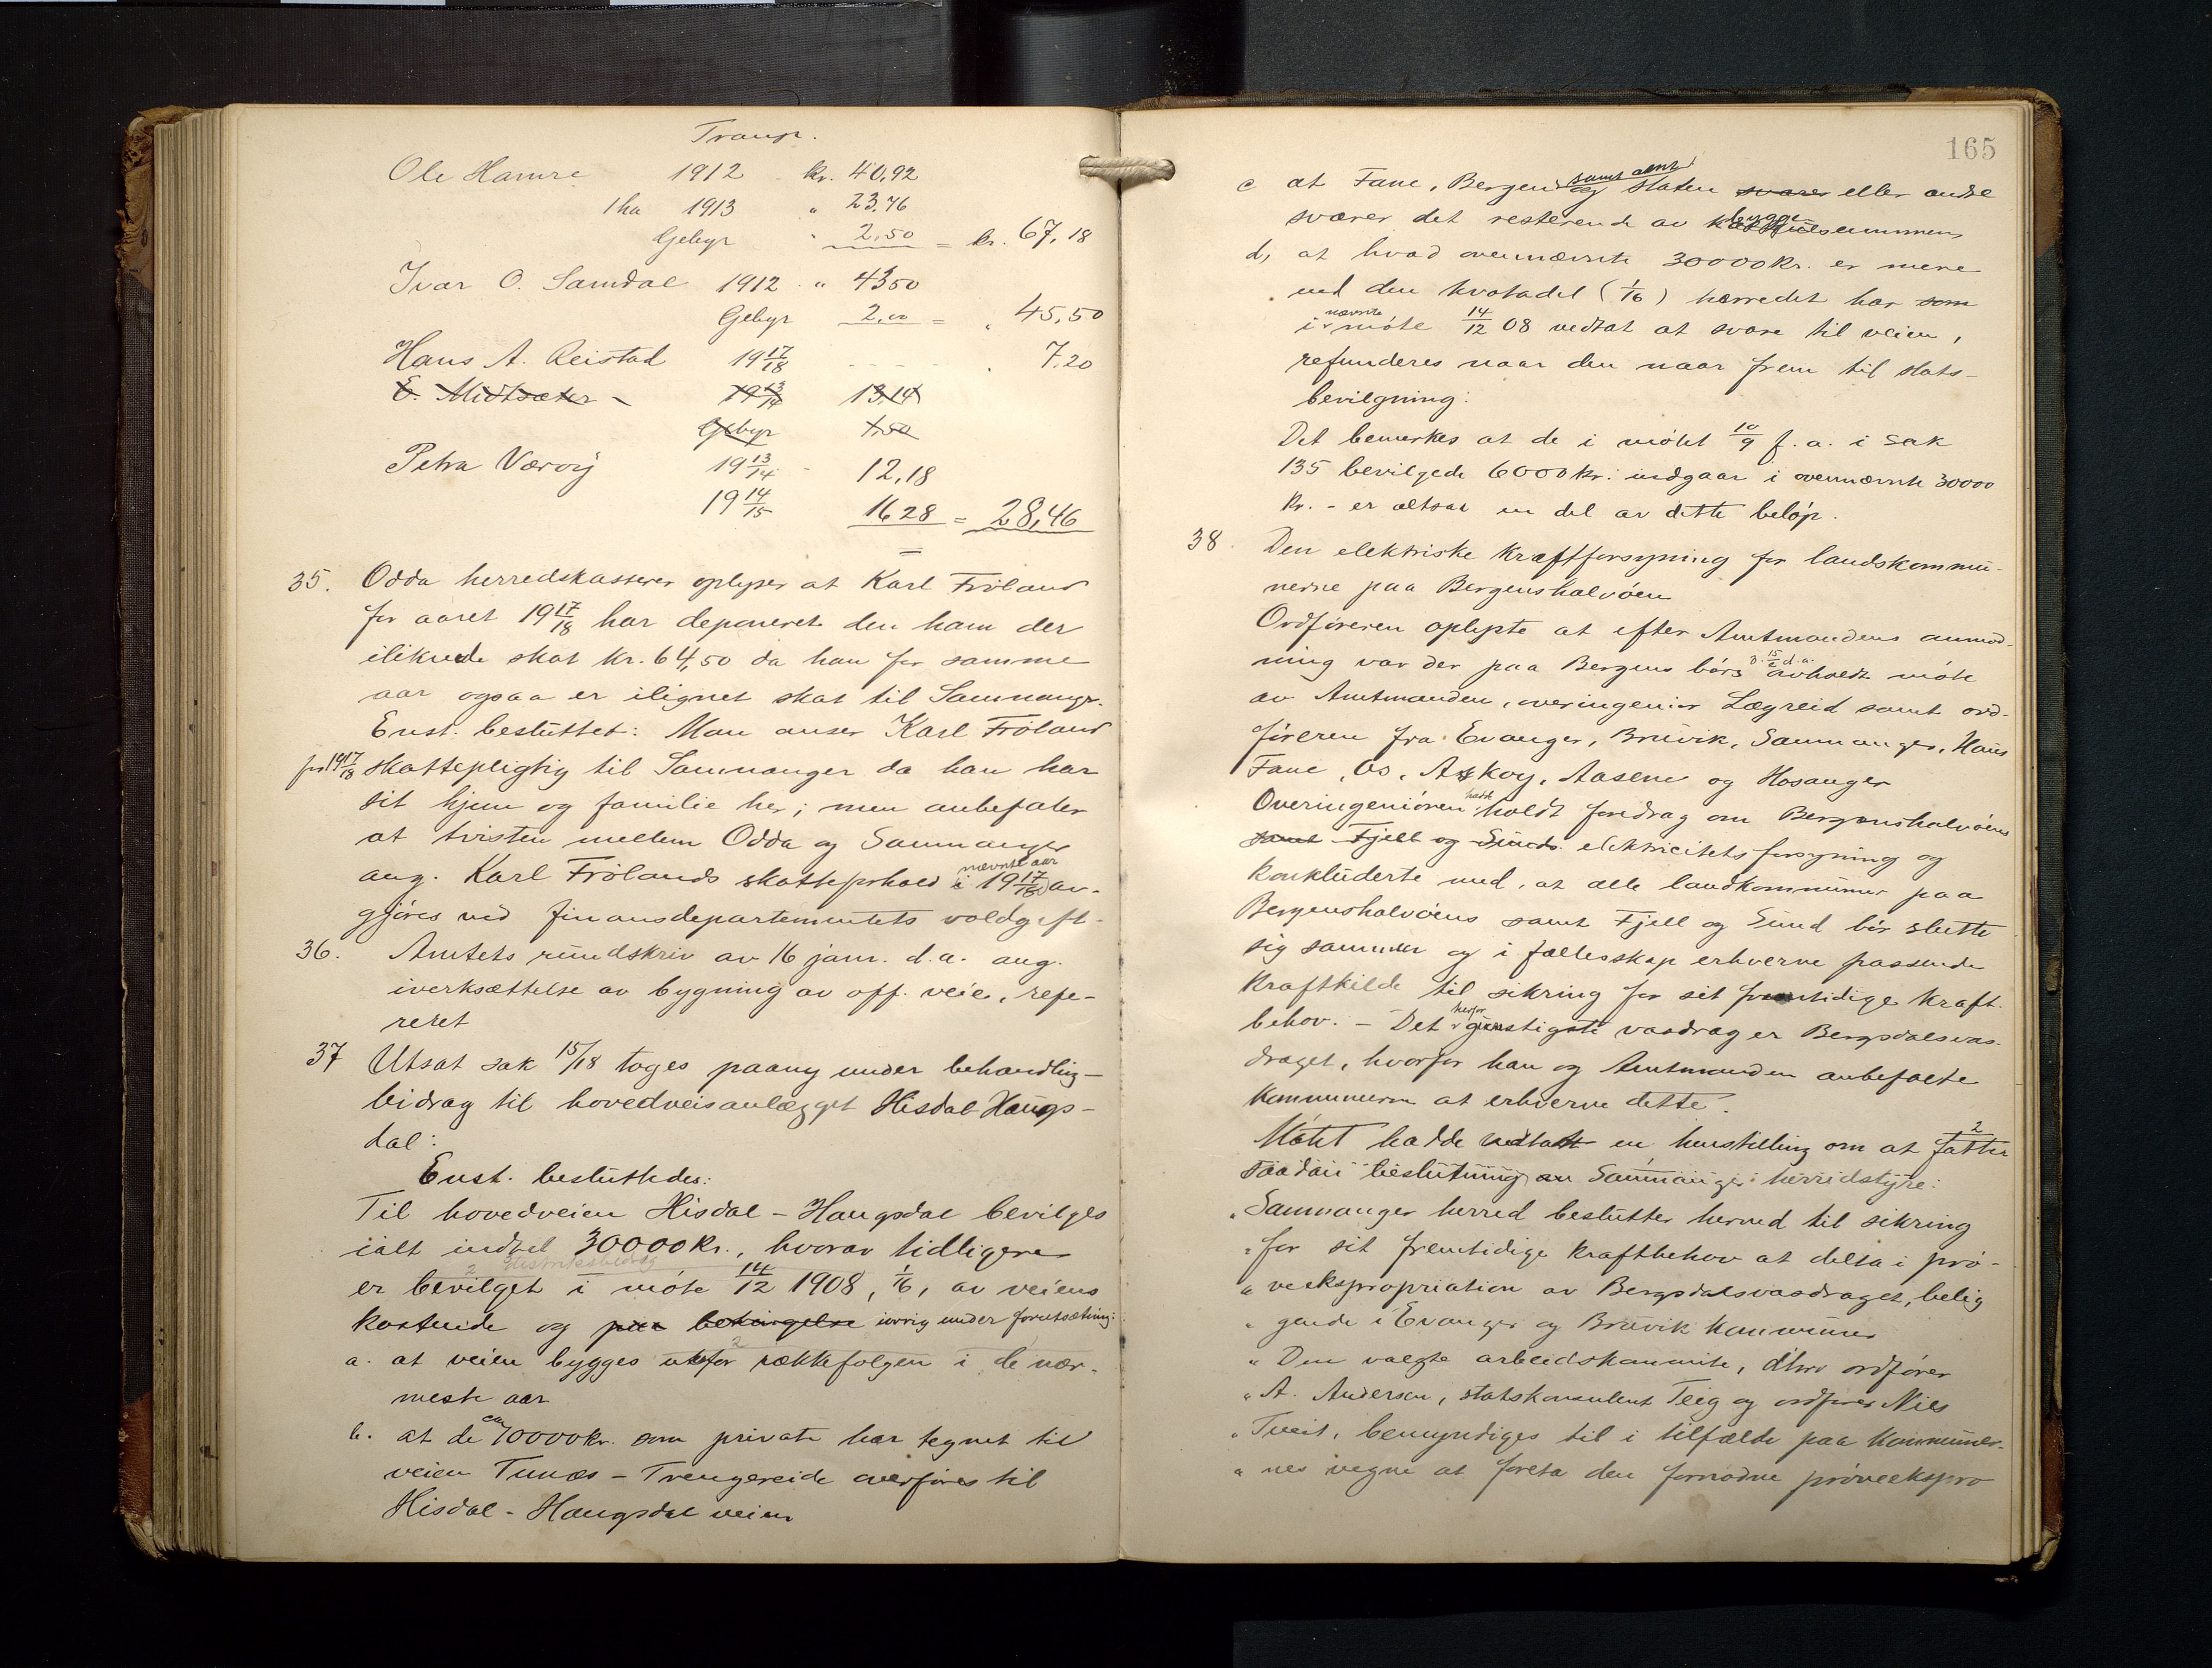 Transp.
Ole Hamre 1912 kr. 40,92
1 ha 1913 " 23,76
Gebyr " 2,50 = kr. 67,18
Ivar O. Samdal 1912 " 43,50
Gebyr 2,00 = " 45,50
Hans A. Reistad 19 17/18 - - - " 7,20
E. Midtsæter - 19 13/14 13,14
Gebyr 1.50
Petra Værøy 19 13/14 - 12,18
19 14/15 16,28 = 28,46
35. Odda herredskasserer oplyser at Karl Fröland
for aaret 19 17/18 har deponeret den ham der
iliknede skat kr. 64,50 da han for samme
aar ogsaa er ilignet skat til Samnanger.
Enst. besluttet: Man anser Karl Fröland
for 19 17/18 skattepligtig til Samnanger da han har
sit hjem og familie her; men anbefaler
at tvisten mellem Odda og Samnanger
nævnte aar
ang. Karl Frölands skatteforhold i 19 17/18 av-
gjøres ved finansdepartementets voldgift -
36. Amtets rundskriv av 16 janr. d.a. ang.
iverksættelse av bygning av off. veie, refe-
reret
37 Utsat sak 15/18 toges paany under behandling -
bidrag til hovedveisanlægget Hisdal Haugs-
dal:
Enst. besluttedes:
Til hovedveien Hisdal - Haugsdal bevilges
ialt indtil 30000 kr., hvorav tidligere
2 distriktsbidrag
er bevilget i möte 14/12 1908, 1/16, av veiens
kostende og paa betingelse iövrig under forutsætning:
2
a. at veien bygges utefor rækkefølgen i de nær-
meste aar
b. at de ca 10000 kr. som private har tegnet til
veien Tunæs - Trengereide overføres til
Hisdal - Haugsdal veien
165
samt amt
c at Fane, Bergen og staten svarer eller andre
bygge
svarer det resterende av summen
d, at hvad ovennævnte 30000 kr. er mere
end den kvotadel (1/16) herredet har som
nævnte
i möte 14/12 08 vedtat at svare til veien,
refunderes naar den naar frem til stats-
bevilgning:
Det bemerkes at de i mötet 10/9 f.a. i sak
135 bevilgede 6000 kr. indgaar i ovennævnte 30000
kr. - er altsaa en del av dette belöp.
38. Den elektriske kraftforsyning for landskommu-
nerne paa Bergenshalvöen
Ordföreren oplyste at efter Amtmandens anmod-
ning var der paa Bergens börs d. 15/2 d.a. avholdt möte
av Amtmanden, overingeniör Lægreid samt ord-
föreren fra Evanger, Bruvik, Samnanger, Haus
Fane, Os, Askøy, Aasene og Hosanger
hadde
Overingeniören holdt foredrag om Bergenshalvöens
samt Fjell og Sunds elektricitetsforsyning og
konkluderte med, at alle landkommuner paa
Bergenshalvöens samt Fjell og Sund bör slutte
sig sammen og i fællesskap erhverve passende
kraftkilde til sikring for sit fremtidige kraft-
herfor
behov. - Det gunstigste vasdrag er Bergsdalsvas-
draget, hvorfor han og Amtmanden anbefalte
kommunerne at erhverve dette.
Mötet hadde vedtatt en henstilling om at fatte 2
saadan beslutning av Samnanger herredstyre:
"Samnanger herred beslutter herved til sikring
"for sit fremtidige kraftbehov at delta i prö-
"veekspropriation av Bergsdalsvasdraget, belig
"gende i Evanger og Bruvik kommuner
"Den valgte arbeidskommite, d'hrr ordfører
"A. Anderson, statskonsulent Teig og ordfører Nils
"Tveit, bemyndiges til i tilfælde paa kommuner-
"nes vegne at foreta den fornødne pröveekspro